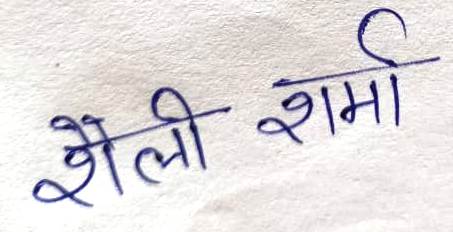 शैली शर्मा